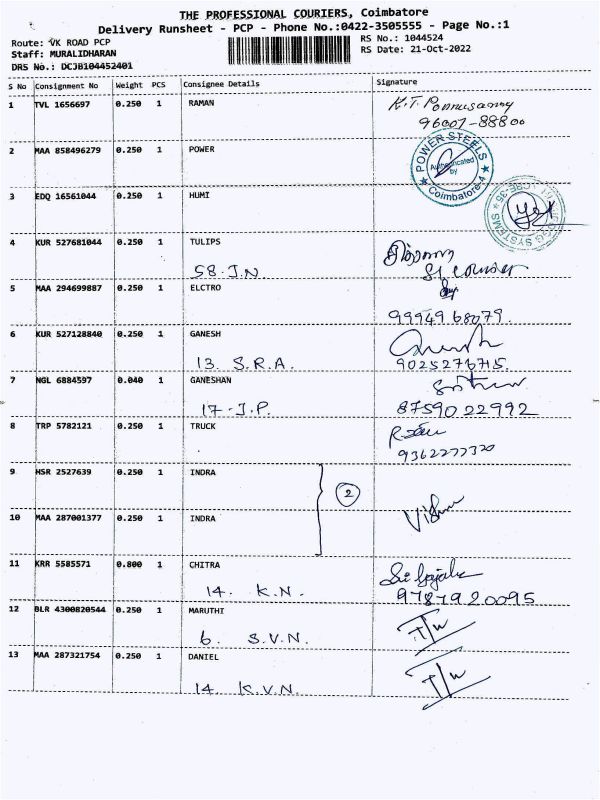 THE PROFESSIONAL COURIERS, Coimbatore
Delivery Runsheet - PCP - Phone No.:0422-3505555 - Page No.:1
Route: VK ROAD PCP
RS No.: 1044524
Staff: MURALIDHARAN
RS Date: 21-Oct-2022
DRS No.: DCJB104452401
S No Consignment No Weight PCS Consignee Details Signature
1 TVL 1656697 0.250 1 RAMAN K.T. Ponnusamy
96007-88800
2 MAA 858496279 0.250 1 POWER
POWER STEELS
Authenticated
by
Coimbatore-4
3 EDQ 16561044 0.250 1 HUMI
SYSTEMS
4 KUR 527681044 0.250 1 TULIPS
58. J.N
5 MAA 294699887 0.250 1 ELCTRO
99949 68079.
6 KUR 527128840 0.250 1 GANESH
13. S.R.A. 9025276715.
7 NGL 6884597 0.040 1 GANESHAN
17-J.P. 8759022992
8 TRP 5782121 0.250 1 TRUCK
9362277320
9 HSR 2527639 0.250 1 INDRA
2
10 MAA 287001377 0.250 1 INDRA
11 KRR 5585571 0.800 1 CHITRA
14. K.N. 9787920095
12 BLR 4300820544 0.250 1 MARUTHI
6. S.V.N. T/W
13 MAA 287321754 0.250 1 DANIEL
14. K.V.N. T/W